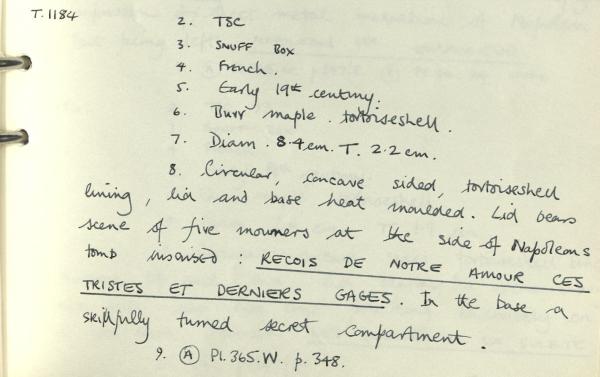 T.1184
2. TSC
3. SNUFF BOX
4. French.
5. Early 19th century.
6. Burr maple. tortoiseshell.
7. Diam. 8.4cm. T. 2.2 cm.
8. Circular, concave sided, tortoiseshell
lining, lid and base heat moulded. Lid bears
scene of five mourners at the side of Napoleons
tomb inscribed : RECOIS DE NOTRE AMOUR CES
TRISTES ET DERNIERS GAGES. In the base a
skilfully turned secret compartment.
9. A Pl. 365.W. p. 348.